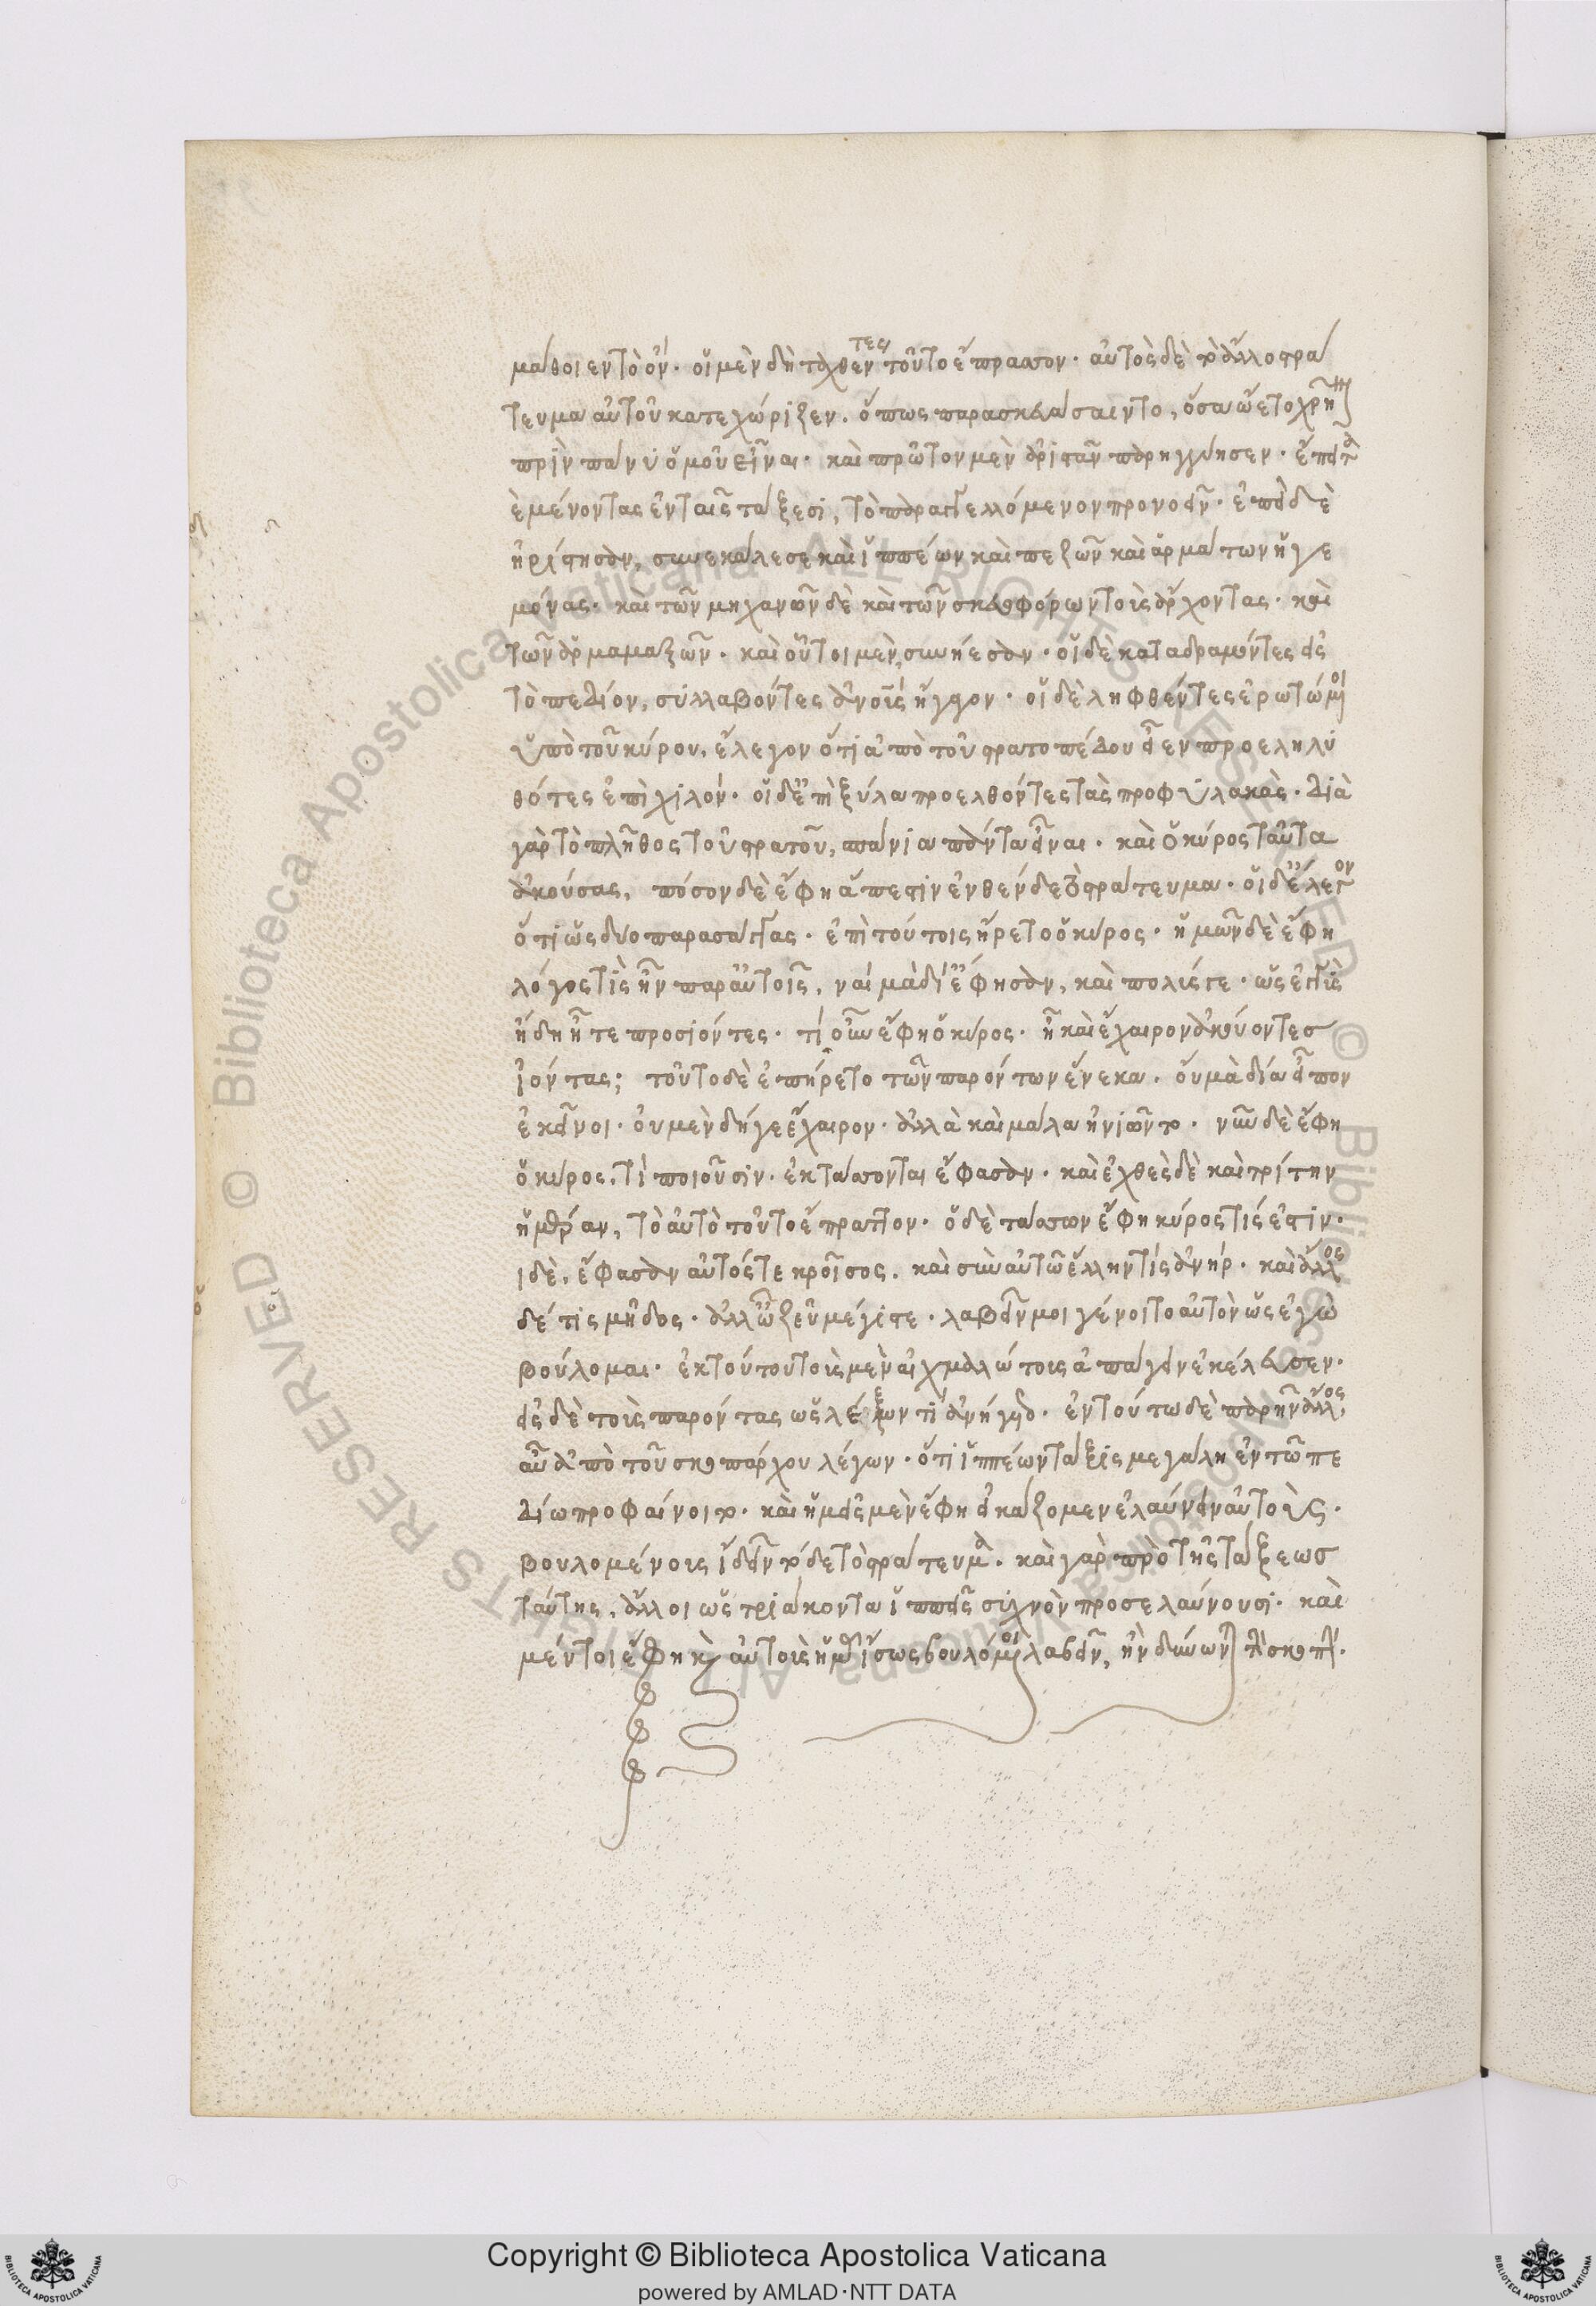 μάθοιεν τὸ ὄν. οἱ μὲν δὴ ταχθέντες τοῦτο ἔπραττον. αὐτὸς δὲ τὸ ἄλλο στρά
τευμα αὐτοῦ κατεχώριζεν. ὅπως παρασκευάσαιντο, ὅσα ᾤετο χρῆναι
πρὶν πάνυ ὁμοῦ εἶναι. καὶ πρῶτον μὲν ἀριστᾶν παρηγγύησεν. ἔπειτα
ἐμένοντας ἐν ταῖς τάξεσι, τὸ παραγγελλόμενον προνοεῖν. ἐπεὶ δὲ
ἠρίστησαν, συνεκάλεσε καὶ ἱππέων καὶ πεζῶν καὶ ἁρμάτων ἡγε
μόνας. καὶ τῶν μηχανῶν δὲ καὶ τῶν σκευοφόρων τοὺς ἄρχοντας. καὶ
τῶν ἁρμαμαξῶν. καὶ οὗτοι μὲν συνῄεσαν. οἱ δὲ καταδραμόντες εἰς
τὸ πεδίον, συλλαβόντες ἀνους ἤγαγον. οἱ δὲ ληφθέντες ἐρωτώμενοι
ὑπὸ τοῦ κύρου, ἔλεγον ὅτι ἀπὸ τοῦ στρατοπέδου εἶεν προεληλυ
θότες ἐπὶ χιλόν. οἱ δ' ἐπὶ ξύλα προελθόντες τὰς προφυλακάς. διὰ
γὰρ τὸ πλῆθος τοῦ στρατοῦ, σπάνια πάντα εἶναι. καὶ ὁ κύρος ταῦτα
ἀκούσας, πόσον δὲ ἔφη ἄπεστιν ἐνθένδε τὸ στράτευμα. οἱ δ' ἔλεγον
ὅτι ὡς δύο παρασάγγας. ἐπὶ τούτοις ἤρετο ὁ κύρος. ἡμῶν δὲ ἔφη
λόγος τίς ἦν παρ' αὐτοῖς, ναὶ μὰ δί' ἔφησαν, καὶ πολύς γε. ὡς ἐγγὺς
ἤδη ἦτε προσιόντες. τί οὖν ἔφη ὁ κύρος. ἦ καὶ ἔχαιρον ἀκούοντες
ἰόντας; τοῦτο δὲ ἐπήρετο τῶν παρόντων ἕνεκα. οὐ μὰ δία εἶπον
ἐκεῖνοι. οὐ μὲν δή γε ἔχαιρον. ἀλλὰ καὶ μάλα ἠνιῶντο. νῦν δὲ ἔφη
ὁ κύρος, τί ποιοῦσιν. ἐκτάττονται ἔφασαν. καὶ ἐχθὲς δὲ καὶ τρίτην
ἡμέραν, τὸ αὐτὸ τοῦτο ἔπραττον. ὁ δὲ τάττων ἔφη κύρος τίς ἐστιν.
ιδὲ, ἔφασαν αὐτός τε κροῖσος. καὶ σὺν αὐτῶ ἕλλην τὶς ἀνήρ. καὶ ἄλλος
δέ τις μῆδος. ἀλλ' ὦ ζεῦ μέγιστε. λαβεῖν μοι γένοιτο αὐτὸν ὡς ἐγὼ
βούλομαι. ἐκ τούτου τοὺς μὲν αἰχμαλώτους ἀπάγειν ἐκέλευσεν.
εἰς δὲ τοὺς παρόντας ὡς λέξων τὶ ἀνήγετο. ἐν τούτω δὲ παρῆν ἄλλος
αὖ ἀπὸ τοῦ σκοπάρχου λέγων. ὅτι ἱππέων τάξις μεγάλη ἐν τῶ πε
δίω προφαίνοιτο. καὶ ἡμεῖς μὲν ἔφη εἰκάζομεν ἐλαύνειν αὐτοὺς.
βουλομένους ἰδεῖν τόδε τὸ στράτευμα. καὶ γὰρ πρὸ τῆς τάξεως
ταύτης, ἄλλοι ὡς τριάκοντα ἱππεῖς συχνὸν προσελαύνουσι. καὶ
μέντοι ἔφη κατ' αὐτοὺς ἡμᾶς ἴσως βουλόμενοι λαβεῖν, ἢν δύνωνται τὴν σκοπήν.
Copyright © Biblioteca Apostolica Vaticana
powered by AMLAD·NTT DATA